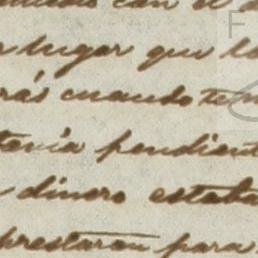 con el
lugar que la
rás cuando
tenía pendient
dinero estaba
prestaron para